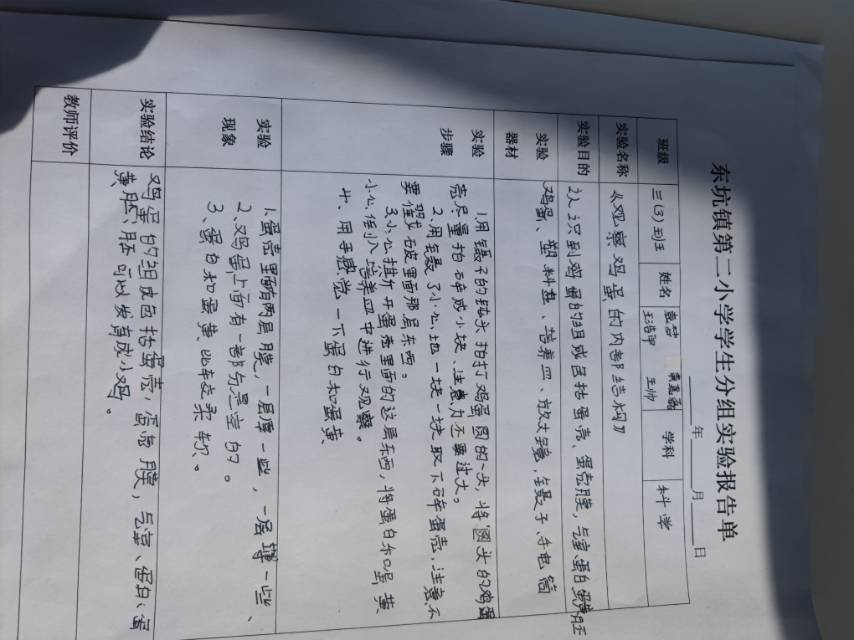 东坑镇第二小学学生分组实验报告单
年 月 日
班级 三(3)班 姓名 王浩宇 王帅 学科 科学
实验名称 《观察鸡蛋的内部结构》
实验目的 认识到鸡蛋的组成包括蛋壳、蛋壳膜,气室、蛋白、蛋黄、胚
实验器材 鸡蛋、塑料垫、培养皿、放大镜、镊子、手电筒
实验步骤 1.用镊子的钝头拍打鸡蛋圆的一头,将圆头的鸡蛋
壳尽量拍碎成小块,注意力不要过大。
2.用镊子小心地一块一块取下碎蛋壳,注意不
要碰破里面那层东西。
3.小心推开蛋壳里面的这层东西,将蛋白和蛋黄
小心倒入培养皿中进行观察。
4、用手感觉一下蛋白和蛋黄
实验现象 1.蛋壳里面有两层膜,一层厚一些,一层薄一些、
2、鸡蛋上面有一部分是空的。
3、蛋白和蛋黄比较柔软、。
实验结论 鸡蛋的组成包括蛋壳,蛋壳膜,气室、蛋白、蛋
黄、胚、胚可以发育成小鸡。
教师评价